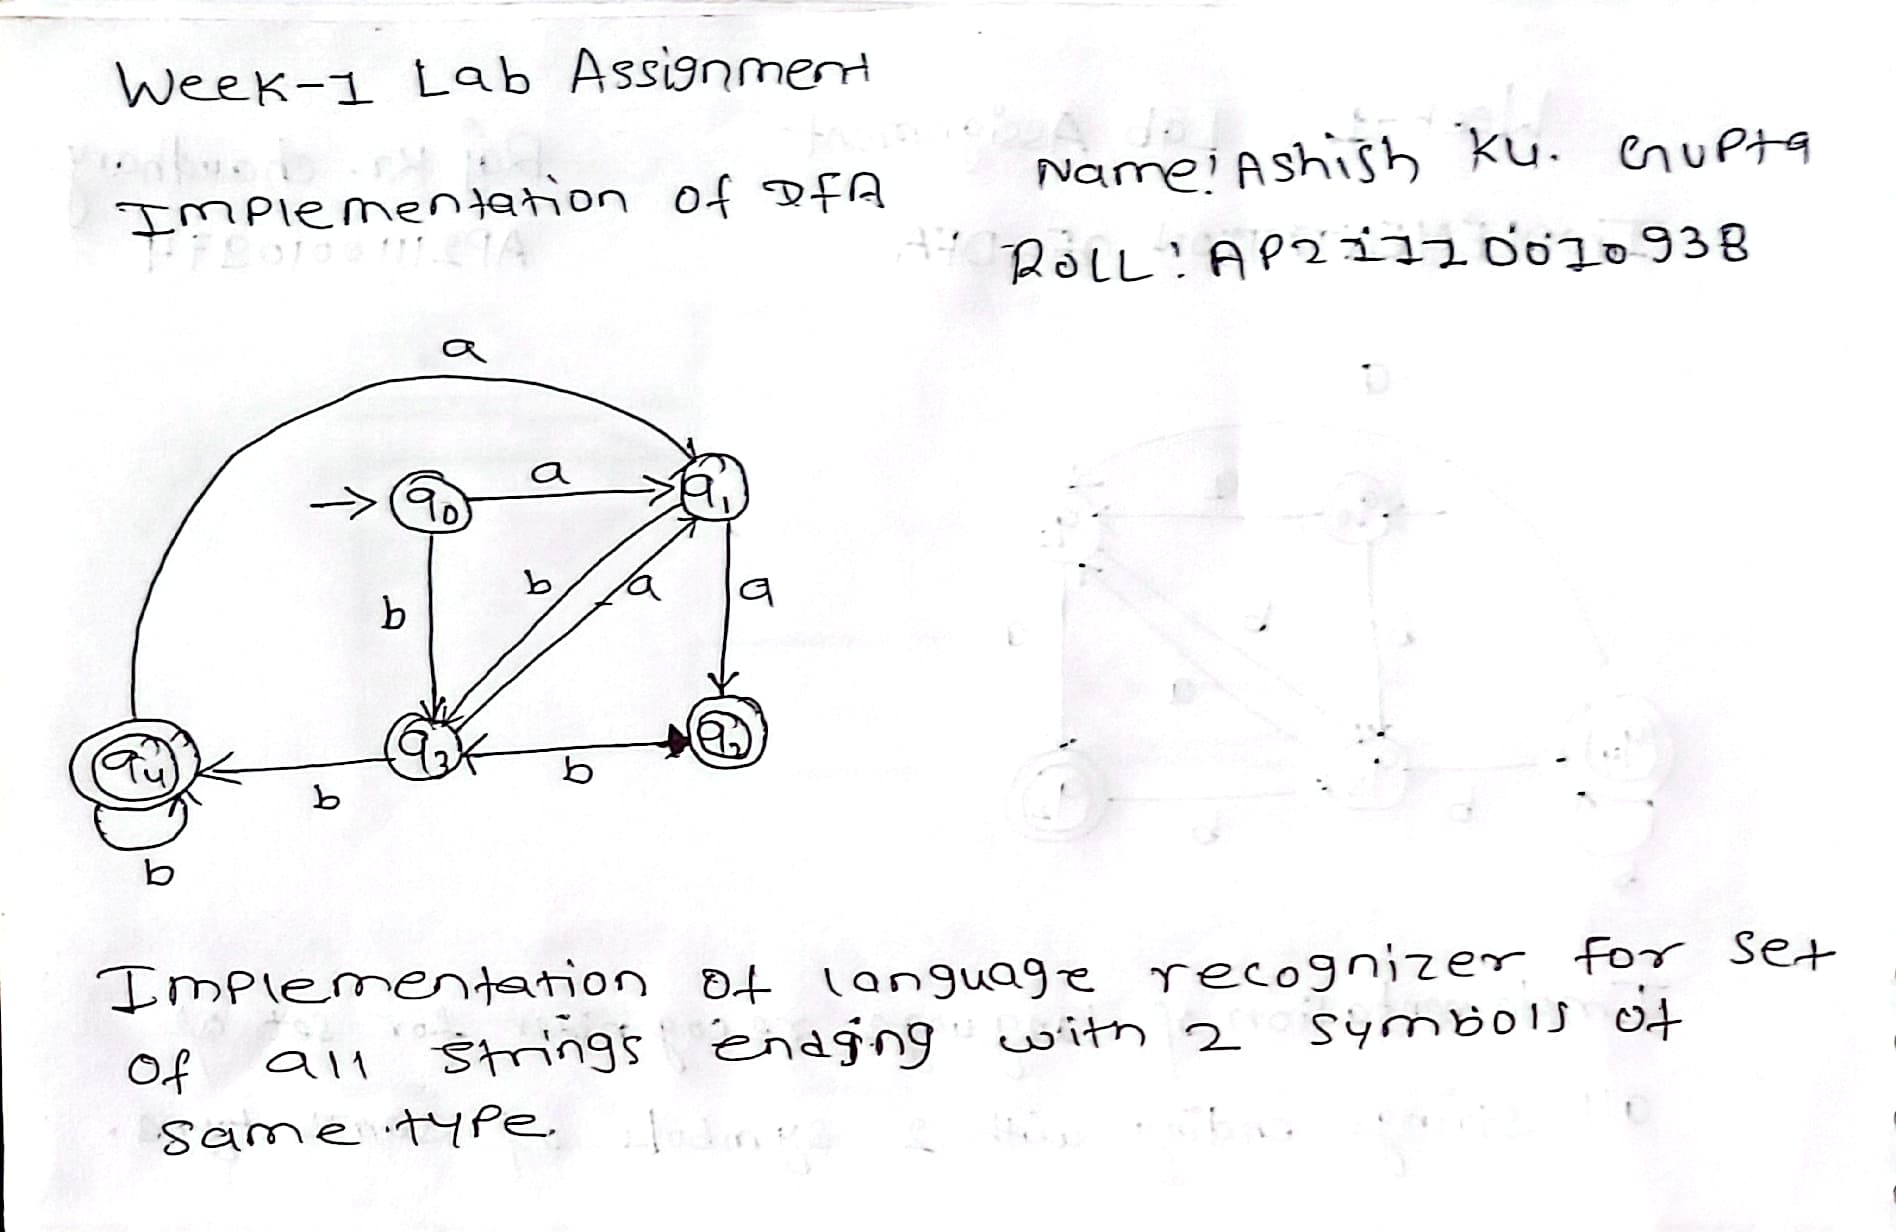 Week-1 Lab Assignment
Implementation of DFA
Name: Ashish Ku. Gupta
ROLL: AP21110010938
a
q0
a
q1
b
b
a
a
q4
b
q3
b
q2
b
Implementation of language recognizer for set
of all strings ending with 2 symbols of
same type.